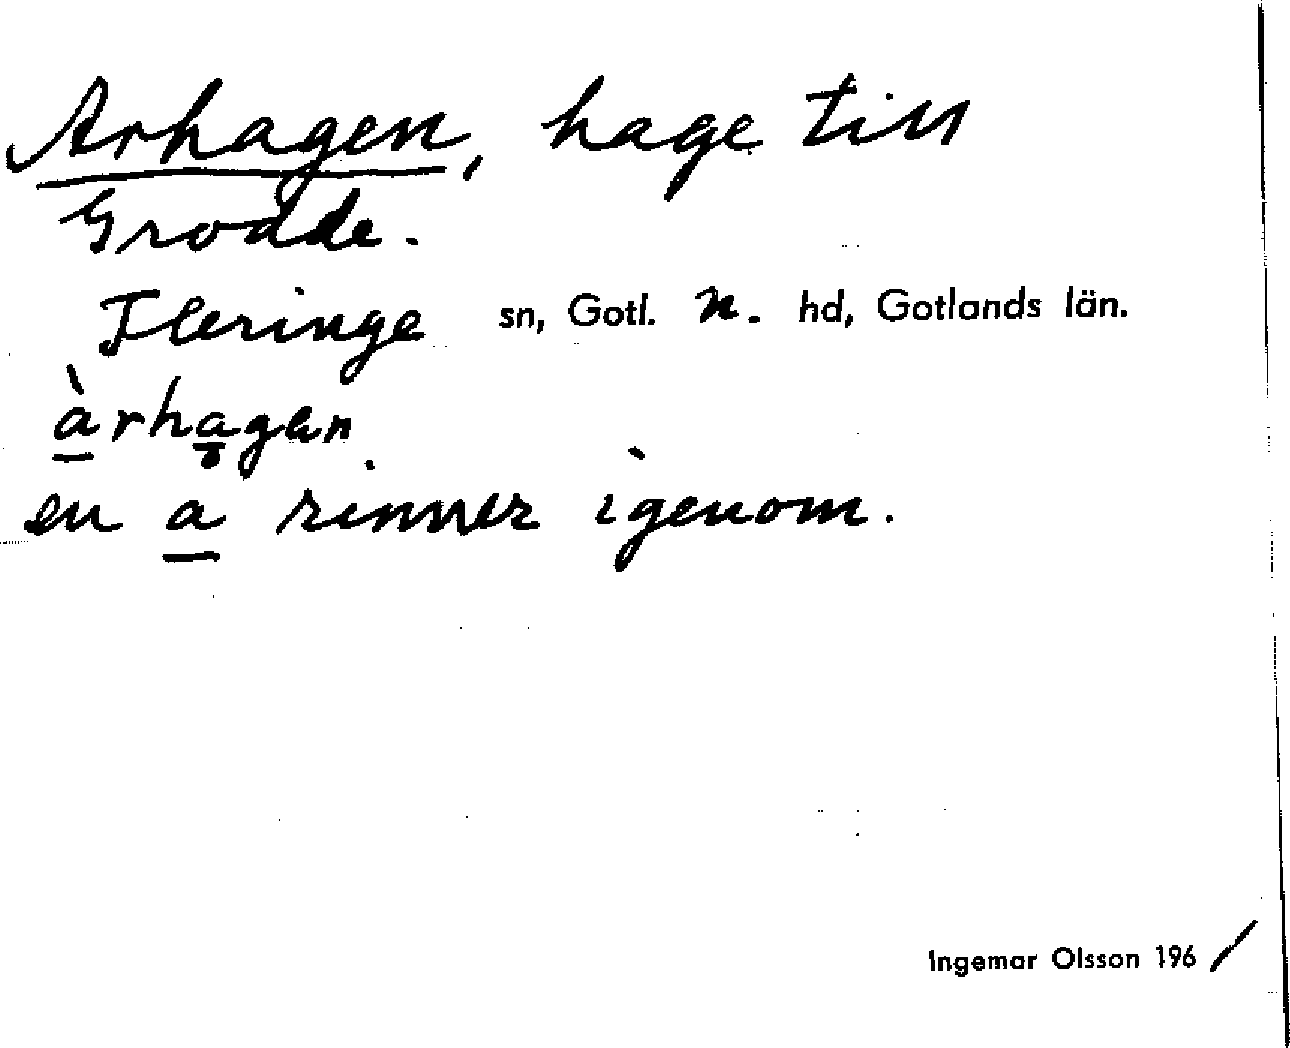 Arhagen, hage till
Grodde.
Fleringe sn, Gotl. n. hd, Gotlands län.
àrhagan
en a rinner igenom.
Ingemar Olsson 1961